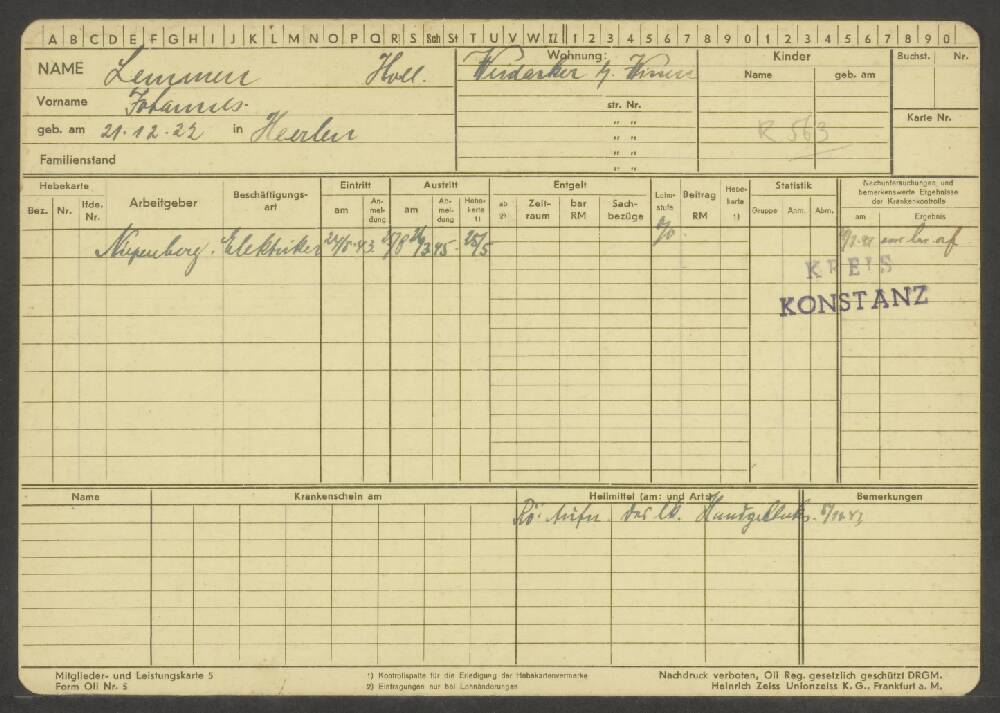 A B C D E F G H I J K L M N O P Q R S Sch St T U V W XZ 1 2 3 4 5 6 7 8 9 0 1 2 3 4 5 6 7 8 9 0
NAME Lemmen Holl.
Wohnung:
Kinder
Buchst. Nr.
Name geb. am
Vorname Johannes.
str. Nr.
geb. am 21.12.22 in Heerlen
" "
" "
" "
" "
Karte Nr.
R 563
Familienstand
Hebekarte
Bez. Nr. lfde. Nr.
Arbeitgeber
Beschäftigungs-
art
Eintritt
am An-mel-dung
Austritt
am Ab-mel-dung Hebe-karte 1)
Entgelt
ab 2) Zeit-raum bar RM Sach-bezüge
Lohn-stufe
Beitrag RM
Hebe-karte 1)
Statistik
Gruppe Anm. Abm.
Nachuntersuchungen und
bemerkenswerte Ergebnisse
der Krankenkontrolle
am Ergebnis
Elektriker 24/5.43 25/8 45. 25/5
KREIS
KONSTANZ
Name
Krankenschein am
Heilmittel (am: und Art:)
Bemerkungen
Rö. Aufn. des lk. Handgelenks.
Mitglieder- und Leistungskarte 5
Form Oli Nr. 5
1) Kontrollspalte für die Erledigung der Hebekartenvermerke
2) Eintragungen nur bei Lohnänderungen
Nachdruck verboten, Oli Reg. gesetzlich geschützt DRGM.
Heinrich Zeiss Unionzeiss K. G., Frankfurt a. M.